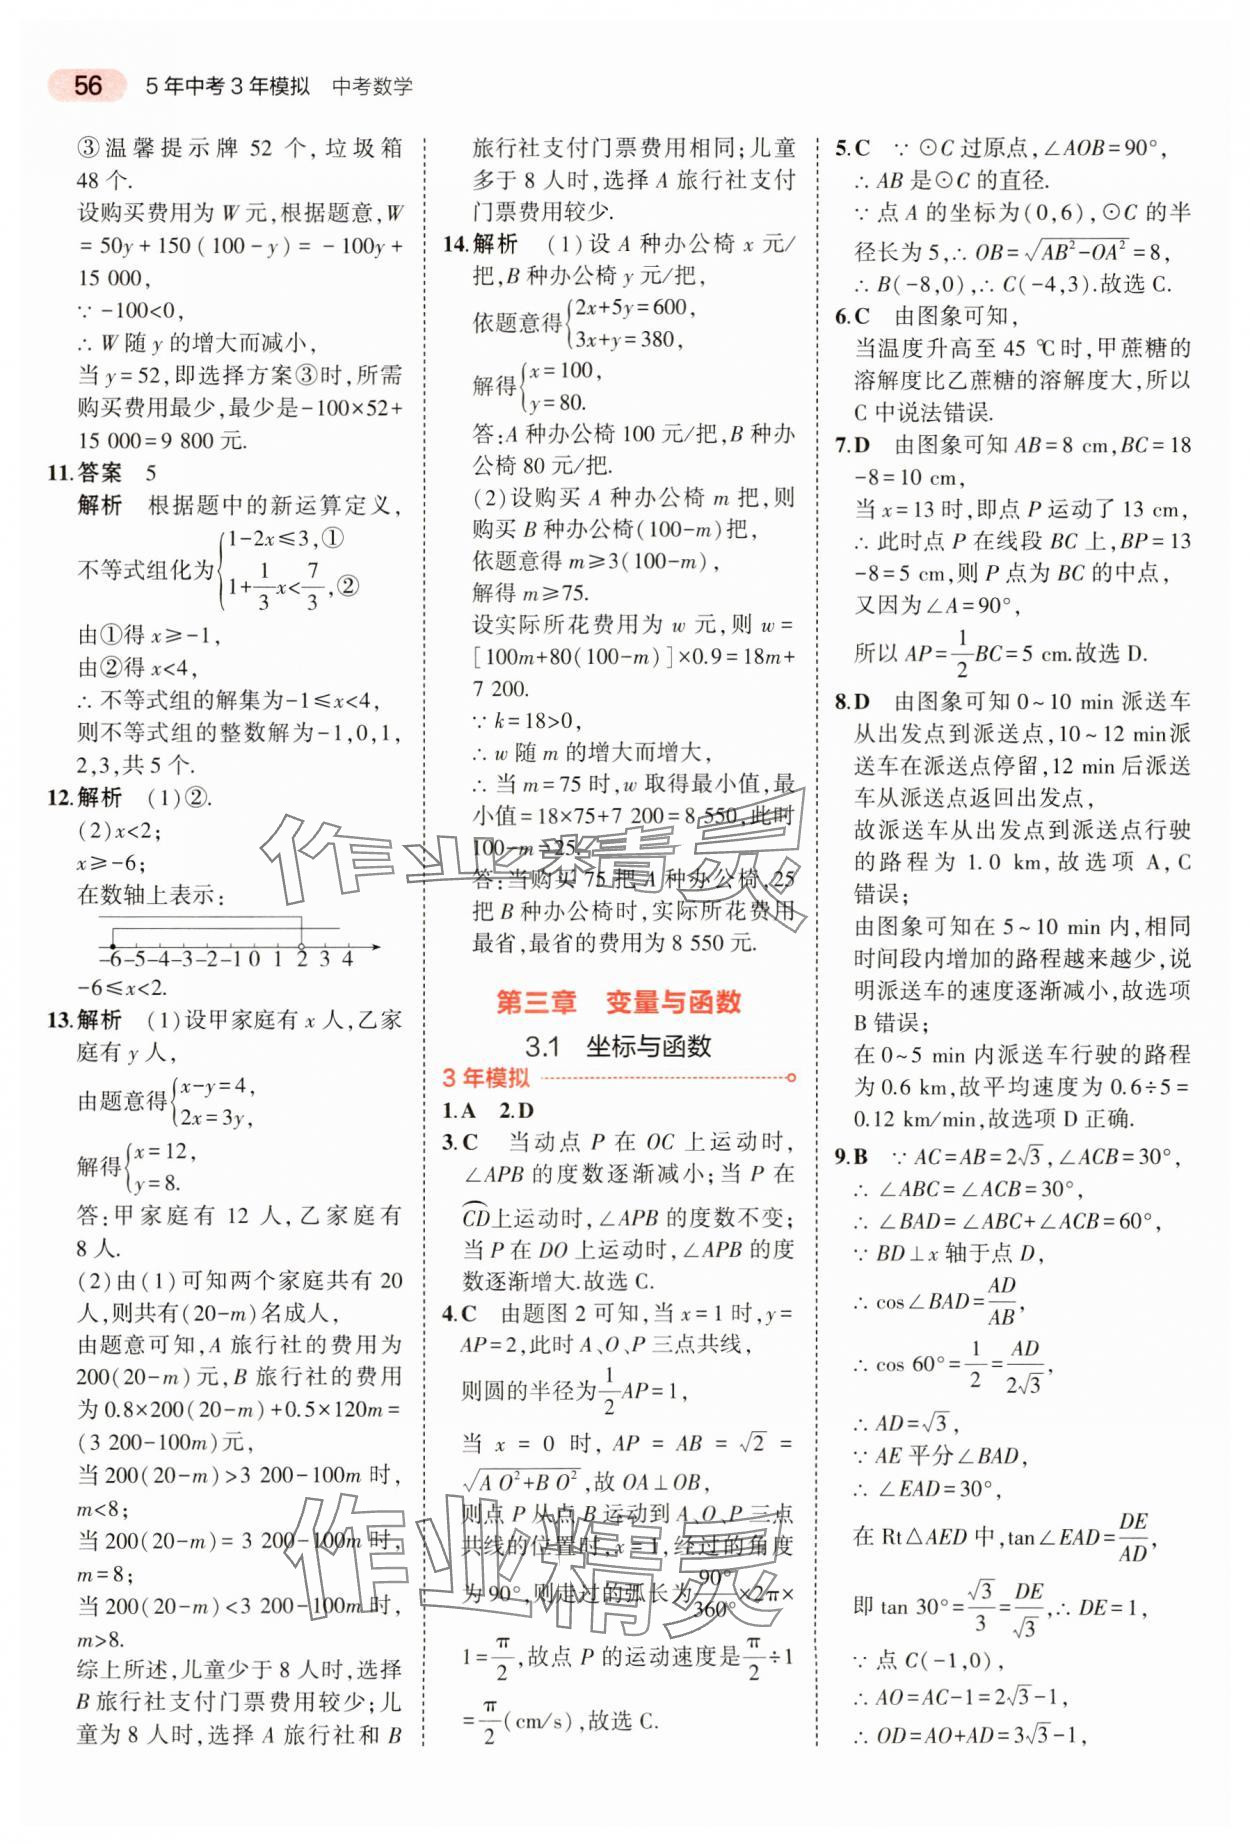 56 5年中考3年模拟 中考数学
③温馨提示牌 52 个,垃圾箱
48 个.
设购买费用为 W 元,根据题意,W
=50y+150(100-y)=-100y+
15 000,
∵ -100<0,
∴ W 随 y 的增大而减小,
当 y=52,即选择方案③时,所需
购买费用最少,最少是-100×52+
15 000=9 800 元.
11.答案 5
解析 根据题中的新运算定义,
不等式组化为{1-2x≤3,①
1+1/3x<7/3,②
由①得 x≥-1,
由②得 x<4,
∴ 不等式组的解集为-1≤x<4,
则不等式组的整数解为-1,0,1,
2,3,共 5 个.
12.解析 (1)②.
(2)x<2;
x≥-6;
在数轴上表示:
-6-5-4-3-2-1 0 1 2 3 4
-6≤x<2.
13.解析 (1)设甲家庭有 x 人,乙家
庭有 y 人,
由题意得{x-y=4,
2x=3y,
解得{x=12,
y=8.
答:甲家庭有 12 人,乙家庭有
8 人.
(2)由(1)可知两个家庭共有 20
人,则共有(20-m)名成人,
由题意可知,A 旅行社的费用为
200(20-m)元,B 旅行社的费用
为 0.8×200(20-m)+0.5×120m=
(3 200-100m)元,
当 200(20-m)>3 200-100m 时,
m<8;
当 200(20-m)=3 200-100m 时,
m=8;
当 200(20-m)<3 200-100m 时,
m>8.
综上所述,儿童少于 8 人时,选择
B 旅行社支付门票费用较少;儿
童为 8 人时,选择 A 旅行社和 B
旅行社支付门票费用相同;儿童
多于 8 人时,选择 A 旅行社支付
门票费用较少.
14.解析 (1)设 A 种办公椅 x 元/
把,B 种办公椅 y 元/把,
依题意得{2x+5y=600,
3x+y=380,
解得{x=100,
y=80.
答:A 种办公椅 100 元/把,B 种办
公椅 80 元/把.
(2)设购买 A 种办公椅 m 把,则
购买 B 种办公椅(100-m)把,
依题意得 m≥3(100-m),
解得 m≥75.
设实际所花费用为 w 元,则 w=
[100m+80(100-m)]×0.9=18m+
7 200.
∵ k=18>0,
∴ w 随 m 的增大而增大,
∴ 当 m=75 时,w 取得最小值,最
小值=18×75+7 200=8 550,此时
100-m=25.
答:当购买 75 把 A 种办公椅,25
把 B 种办公椅时,实际所花费用
最省,最省的费用为 8 550 元.
第三章 变量与函数
3.1 坐标与函数
3年模拟
1.A 2.D
3.C 当动点 P 在 OC 上运动时,
∠APB 的度数逐渐减小;当 P 在
⌒CD上运动时,∠APB 的度数不变;
当 P 在 DO 上运动时,∠APB 的度
数逐渐增大.故选 C.
4.C 由题图 2 可知,当 x=1 时,y=
AP=2,此时 A、O、P 三点共线,
则圆的半径为1/2AP=1,
当 x = 0 时, AP = AB = √2 =
√(AO²+BO²),故 OA⊥OB,
则点 P 从点 B 运动到 A、O、P 三点
共线的位置时,x=1,经过的角度
为 90°,则走过的弧长为90°/360°×2π×
1=π/2,故点 P 的运动速度是π/2÷1
=π/2(cm/s),故选 C.
5.C ∵ ⊙C 过原点,∠AOB=90°,
∴ AB 是⊙C 的直径.
∵ 点 A 的坐标为(0,6),⊙C 的半
径长为 5,∴ OB=√(AB²-OA²)=8,
∴ B(-8,0),∴ C(-4,3).故选 C.
6.C 由图象可知,
当温度升高至 45 ℃时,甲蔗糖的
溶解度比乙蔗糖的溶解度大,所以
C 中说法错误.
7.D 由图象可知 AB=8 cm,BC=18
-8=10 cm,
当 x=13 时,即点 P 运动了 13 cm,
∴ 此时点 P 在线段 BC 上,BP=13
-8=5 cm,则 P 点为 BC 的中点,
又因为∠A=90°,
所以 AP=1/2BC=5 cm.故选 D.
8.D 由图象可知 0~10 min 派送车
从出发点到派送点,10~12 min派
送车在派送点停留,12 min 后派送
车从派送点返回出发点,
故派送车从出发点到派送点行驶
的路程为 1.0 km,故选项 A,C
错误;
由图象可知在 5~10 min 内,相同
时间段内增加的路程越来越少,说
明派送车的速度逐渐减小,故选项
B 错误;
在 0~5 min 内派送车行驶的路程
为 0.6 km,故平均速度为 0.6÷5=
0.12 km/min,故选项 D 正确.
9.B ∵ AC=AB=2√3,∠ACB=30°,
∴ ∠ABC=∠ACB=30°,
∴ ∠BAD=∠ABC+∠ACB=60°,
∵ BD⊥x 轴于点 D,
∴ cos∠BAD=AD/AB,
∴ cos 60°=1/2=AD/2√3,
∴ AD=√3,
∵ AE 平分∠BAD,
∴ ∠EAD=30°,
在 Rt△AED 中,tan∠EAD=DE/AD,
即 tan 30°=√3/3=DE/√3,∴ DE=1,
∵ 点 C(-1,0),
∴ AO=AC-1=2√3-1,
∴ OD=AO+AD=3√3-1,
作业精灵
作业精灵